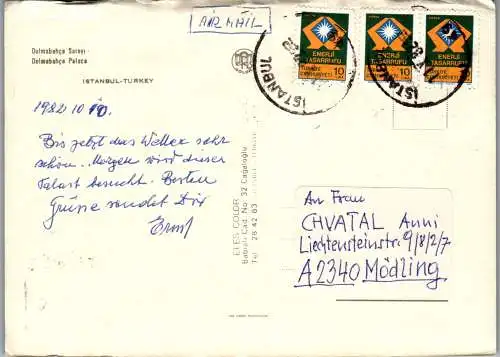 AIR MAIL
Dolmabahçe Sarayı -
Dolmabahçe Palace
ISTANBUL - TURKEY
1982 10
Bis jetzt das Wetter sehr
schön. Morgen wird dieser
Palast besucht. Besten
Grüsse sendet Dir
Ernst
ENERJİ
TASARRUFU
TÜRKİYE CUMHURİYETİ 10
ENERJİ
TASARRUFU
10
ENERJİ
TASARRUFU
10
İSTANBUL
İSTANBUL
ELES COLOR
Babıali Cad. No: 32 Cağaloğlu
Tel: 28 42 63
An Frau
CHVATAL Anni
Liechtensteinstr. 9/8/2/7
A2340 Mödling